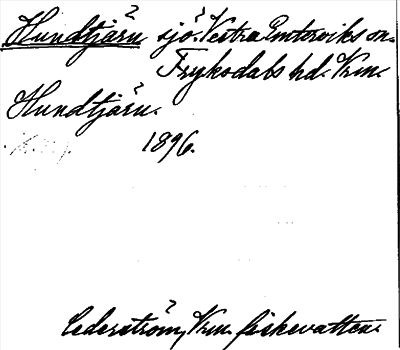 Hundtjärn sjö. Vestra Emterviks sn.
Frykodals hd. Vrm.
Hundtjärn.
1896.
Cederström, Vrm. fiskevatten.